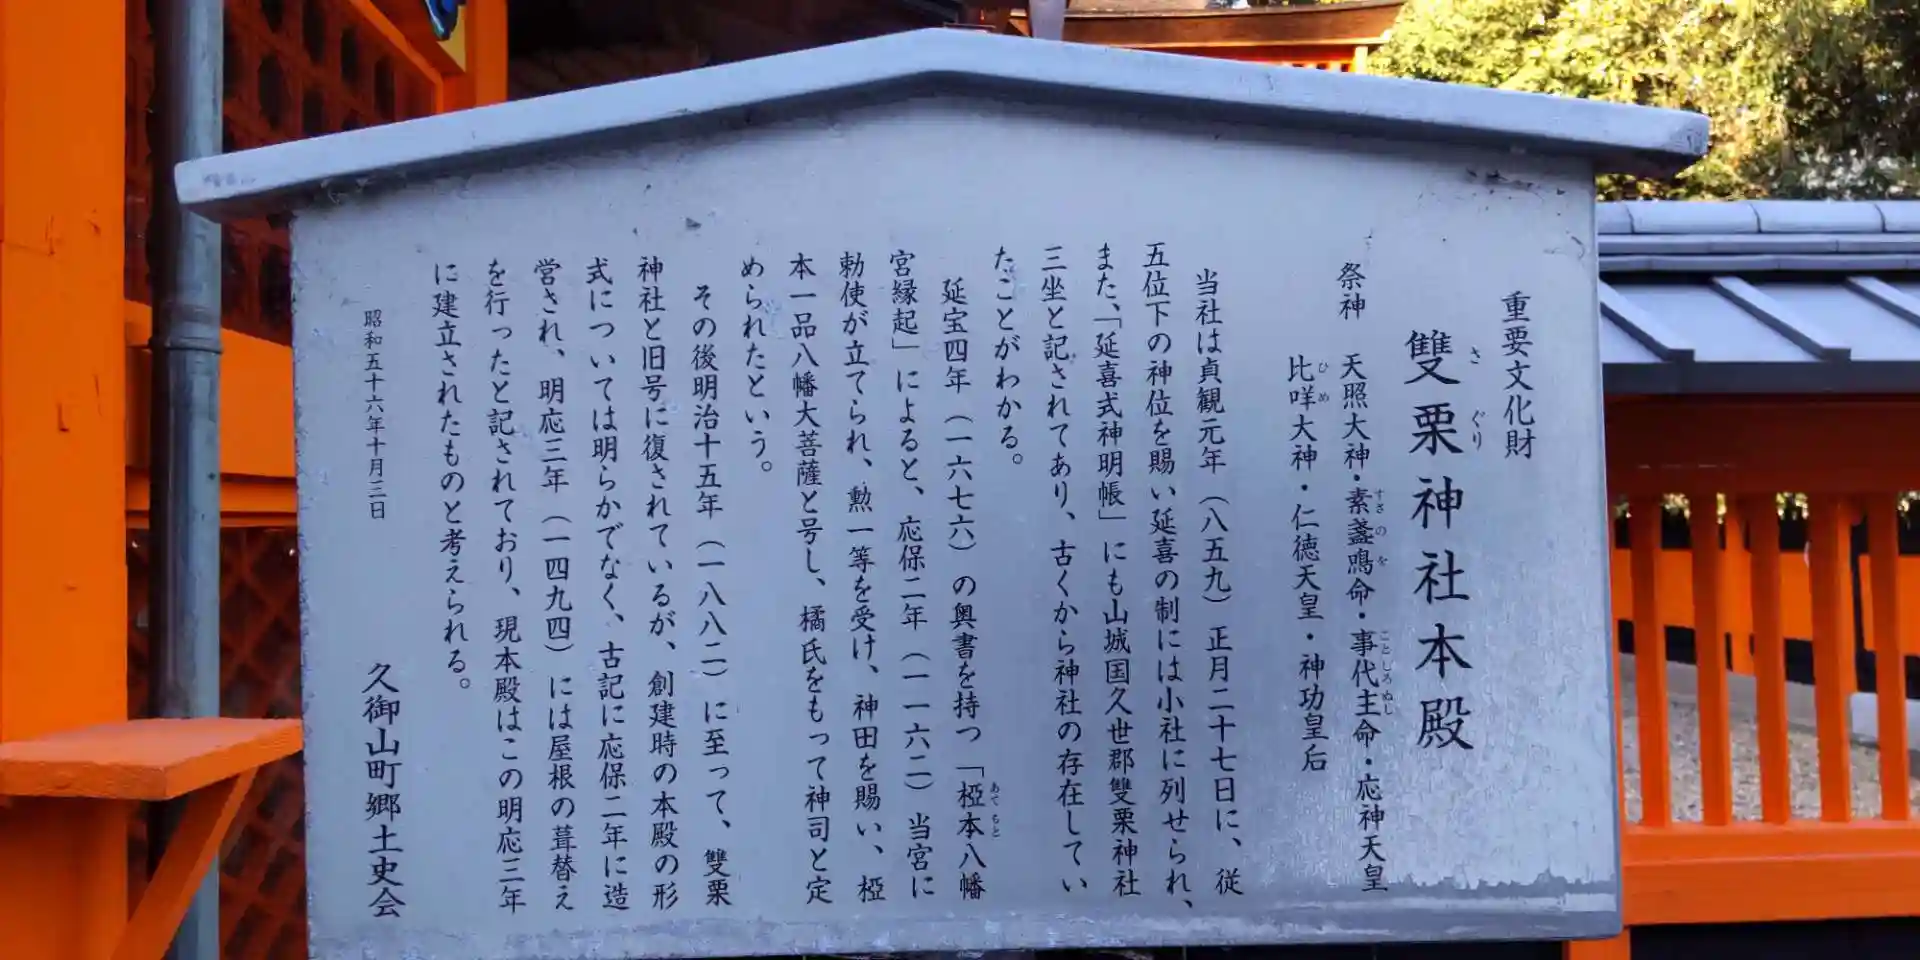 重要文化財
雙栗神社本殿
さぐり
祭神　天照大神・素盞鳴命・事代主命・応神天皇
すさのを　ことしろぬし
比咩大神・仁徳天皇・神功皇后
ひめ
当社は貞観元年（八五九）正月二十七日に、従
五位下の神位を賜い延喜の制には小社に列せられ、
また、「延喜式神明帳」にも山城国久世郡雙栗神社
三坐と記されてあり、古くから神社の存在してい
たことがわかる。
延宝四年（一六七六）の奥書を持つ「椏本八幡
あてもと
宮縁起」によると、応保二年（一一六二）当宮に
勅使が立てられ、勲一等を受け、神田を賜い、椏
本一品八幡大菩薩と号し、橘氏をもって神司と定
められたという。
その後明治十五年（一八八二）に至って、雙栗
神社と旧号に復されているが、創建時の本殿の形
式については明らかでなく、古記に応保二年に造
営され、明応三年（一四九四）には屋根の葺替え
を行ったと記されており、現本殿はこの明応三年
に建立されたものと考えられる。
昭和五十六年十月三日
久御山町郷土史会